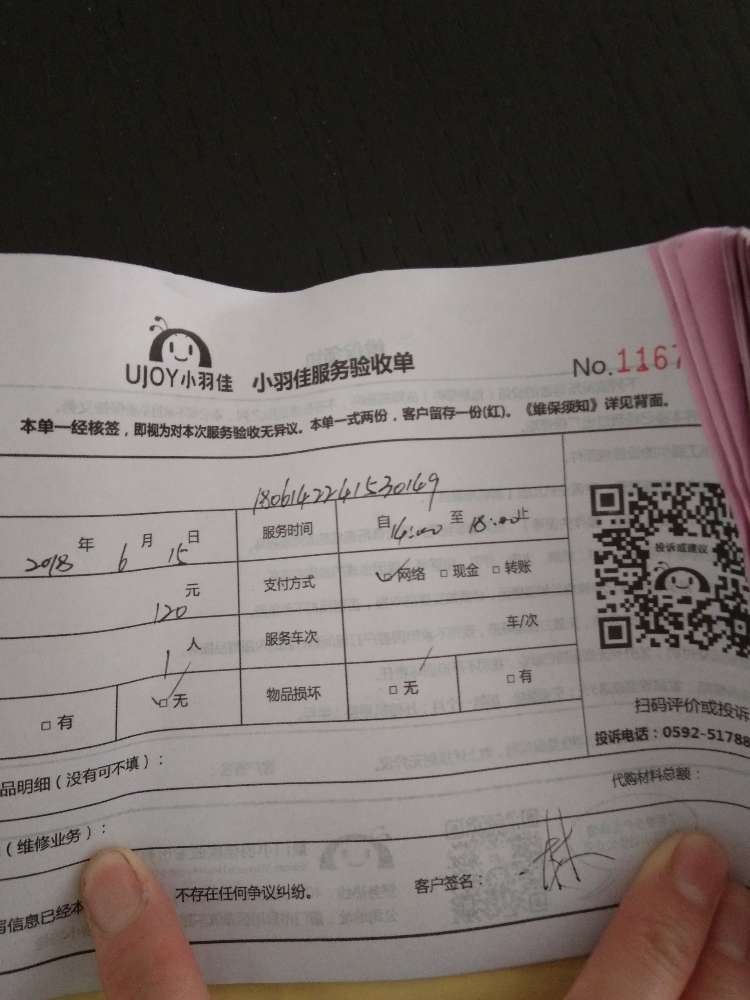 UJOY小羽佳 小羽佳服务验收单 No.1167
本单一经核签，即视为对本次服务验收无异议。本单一式两份，客户留存一份(红)。《维保须知》详见背面。
1806142241530149
2018 年 6 月 15 日 服务时间 自 14:00 至 18:00 止
120 元 支付方式 ☑网络 □现金 □转账
1 人 服务车次 / 车/次
□有 ☑无 物品损坏 □无 □有
投诉或建议
扫码评价或投诉
投诉电话：0592-51788
品明细（没有可不填）： 代购材料总额：
（维修业务）：
信息已经本
不存在任何争议纠纷。 客户签名： 林